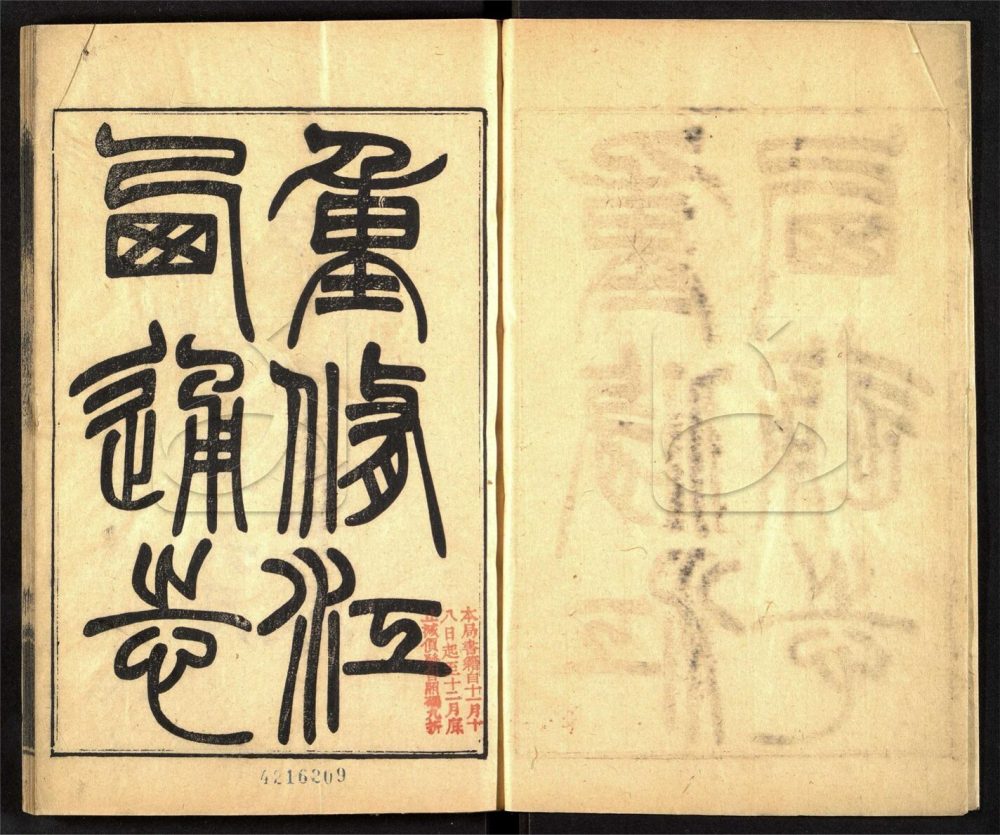 重修江
西通志
本局書籍自十一月十
八日起至十二月底
止減價 碼九折
4216209